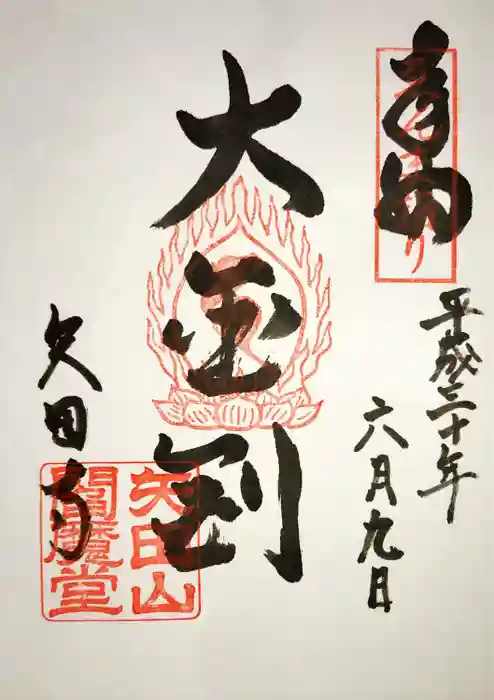 奉拝
平成三十年
六月九日
大金剛
矢田寺
矢田山
閻魔堂